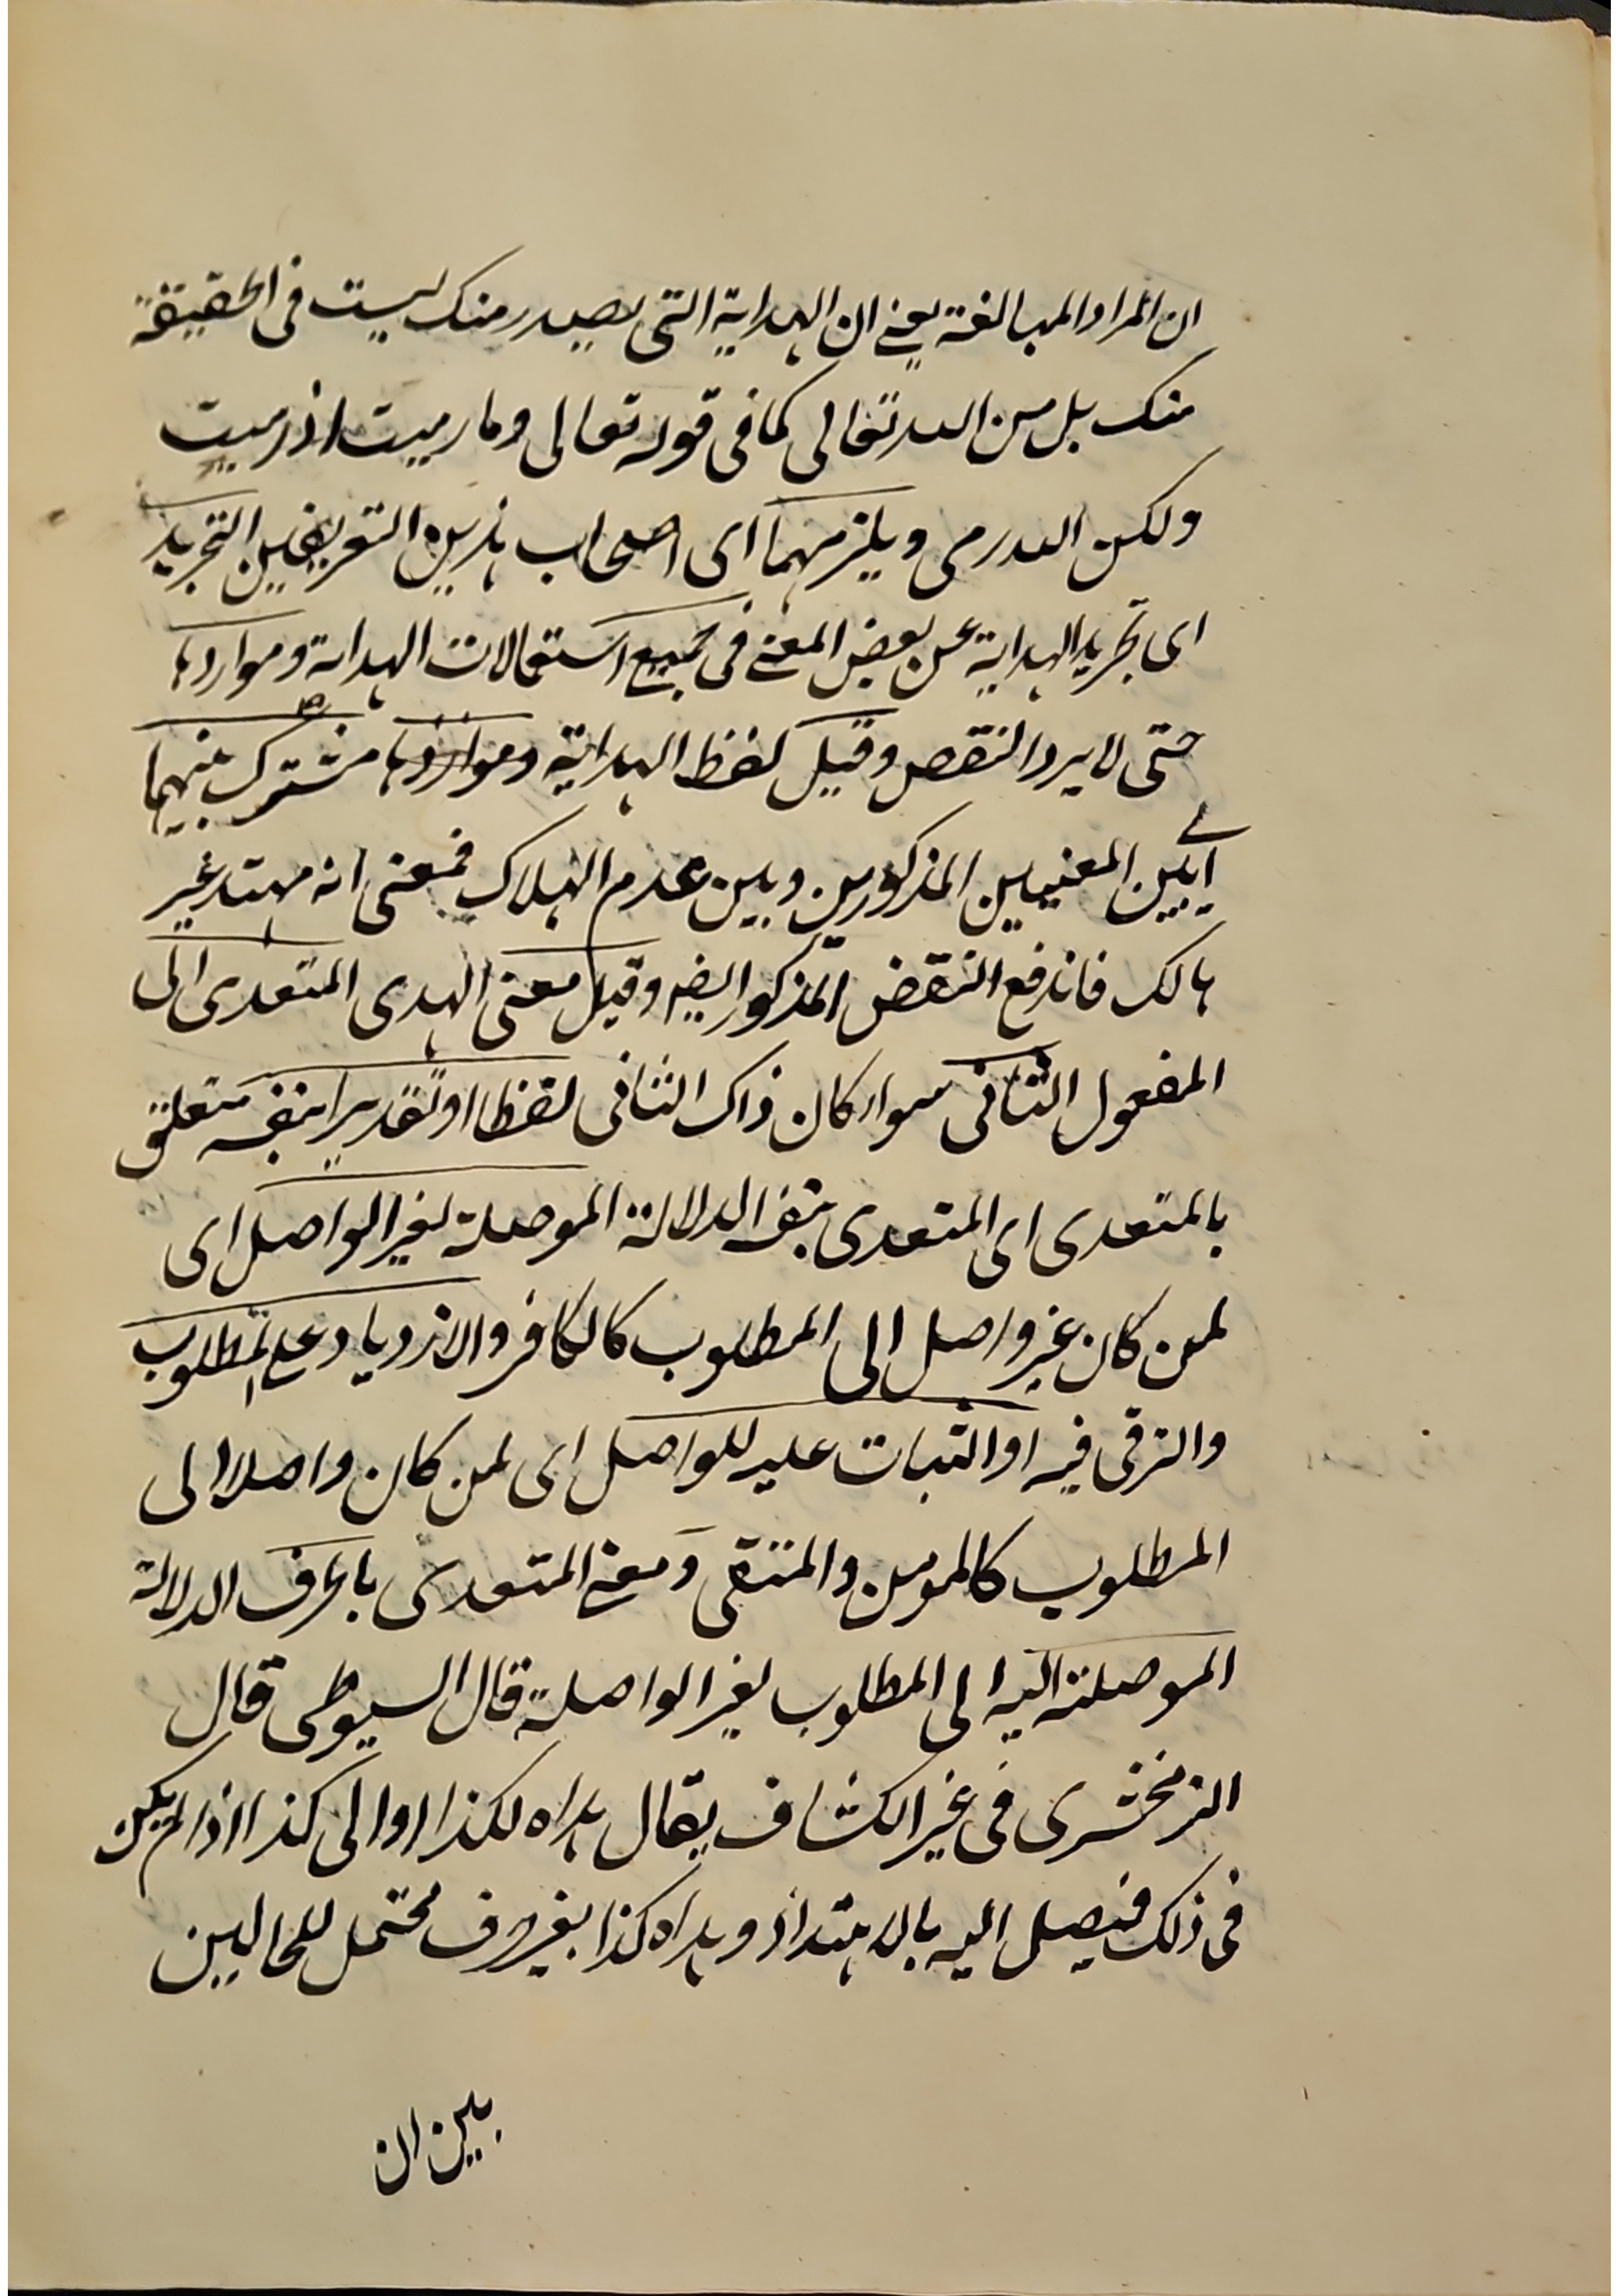 ان المراد المبالغة يعنى ان الهداية التى يصدر منك ليست فى الحقيقة
منك بل من الله تعالى كما فى قوله تعالى وما رميت اذ رميت
ولكن الله رمى ويلزمهما اى اصحاب هذين التعريفين التجريد
اى تجريد الهداية عن بعض المعنى فى جميع استعمالات الهداية ومواردها
حتى لا يرد النقص وقيل لفظ الهداية ومواردها مشترك بينهما
اى بين المعنيين المذكورين وبين عدم الهلاك فمعنى انه مهتد غير
هالك فاندفع النقض المذكور ايضه وقيل معنى الهدى المتعدى الى
المفعول الثانى سواء كان ذاك الثانى لفظا او تقديرا بنفسه متعلق
بالمتعدى اى المتعدى بنفسه الدلالة الموصلة لغير الواصل اى
لمن كان غير واصل الى المطلوب كالكافر والازدياد على المطلوب
والترقى فيه او الثبات عليه للواصل اى لمن كان واصلا الى
المطلوب كالمومن والمتقى ومعنى المتعدى بالحرف الدلالة
الموصلة اليه الى المطلوب لغير الواصلة قال السيوطى قال
الزمخشرى فى غير الكشاف يقال هداه لكذا او الى كذا اذا لم يكن
فى ذلك فيصل اليه بالاهتداذ وهداه كذا بغير حرف محتمل للحالين
بين ان